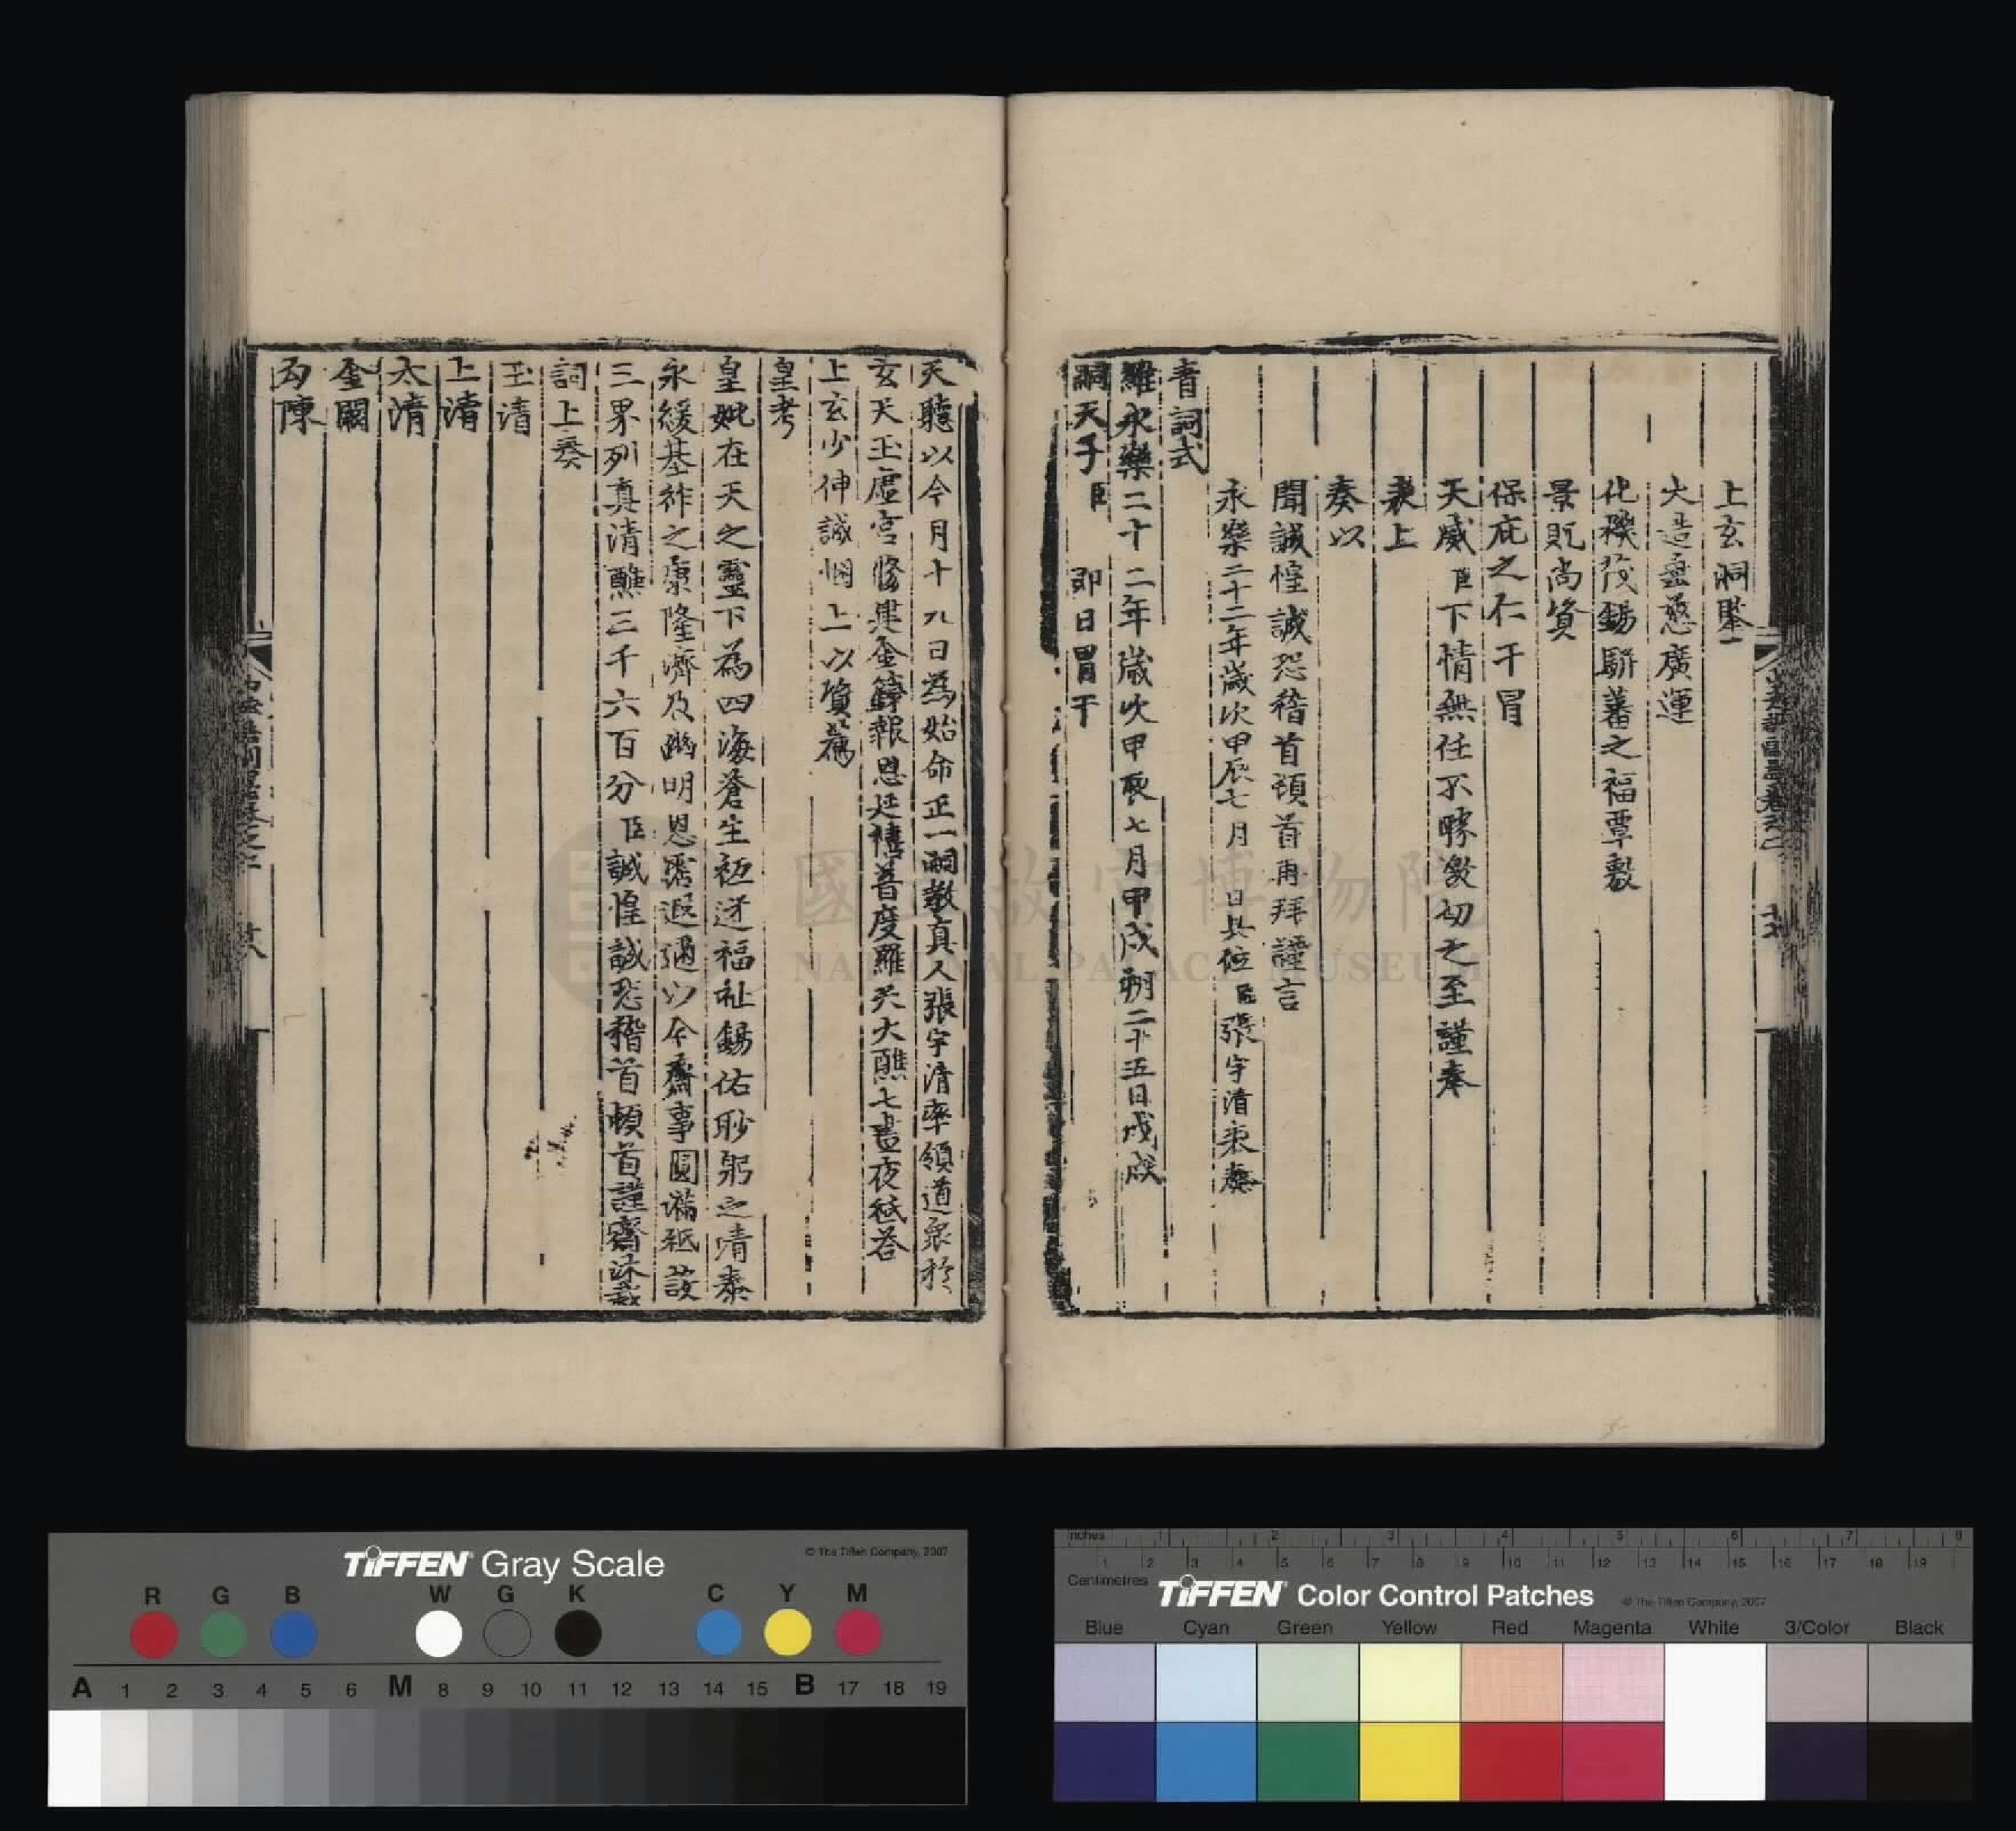 上玄洞鑒
大造垂慈廣運
化機茂錫駢蕃之福覃敷
景貺尚冀
保庇之仁干冒
天威臣下情無任不勝激切之至謹奉
表上
奏以
聞誠惶誠恐稽首頓首再拜謹言
永樂二十二年歲次甲辰七月 日具位臣張宇清表奏
青詞式
維永樂二十二年歲次甲辰七月甲戌朔二十五日戊戌
嗣天子臣 即日冒干
天聽以今月十九日為始命正一嗣教真人張宇清率領道衆於
玄天玉虛宮修建金籙報恩延禧普度羅天大醮七晝夜祗荅
上玄少伸誠悃上以資薦
皇考
皇妣在天之靈下為四海蒼生祈迓福祉錫佑眇躬之清泰
永綏基祚之康隆濟及幽明恩霑遐邇以今齋事圓滿祗設
三界列真清醮三千六百分臣誠惶誠恐稽首頓首謹齋沐裁
詞上奏
玉清
上清
太清
金闕
勾陳
國立故宮博物院
NATIONAL PALACE MUSEUM
TIFFEN Gray Scale
© The Tiffen Company, 2007
R G B W G K C Y M
A 1 2 3 4 5 6 M 8 9 10 11 12 13 14 15 B 17 18 19
Inches 1 2 3 4 5 6 7 8
1 2 3 4 5 6 7 8 9 10 11 12 13 14 15 16 17 18 19
Centimetres
TIFFEN Color Control Patches
© The Tiffen Company, 2007
Blue Cyan Green Yellow Red Magenta White 3/Color Black